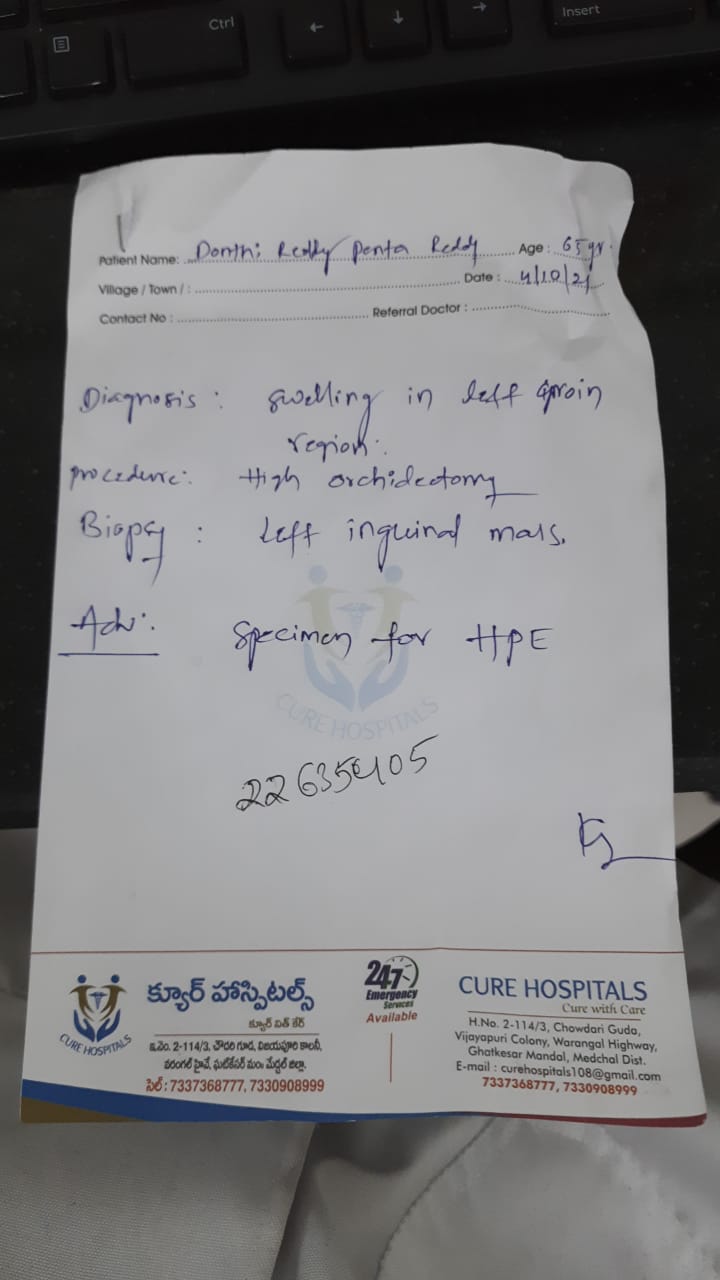 Ctrl
Insert
Patient Name: Donthi Reddy Penta Reddy Age : 65 yr.
Village / Town / : Date : 4/10/21
Contact No : Referral Doctor :
Diagnosis : Swelling in left groin
region.
Procedure: High orchidectomy
Biopsy : Left inguinal mass.
Adv: Specimen for HPE
CURE HOSPITALS
CURE HOSPITALS
క్యూర్ హాస్పిటల్స్
క్యూర్ విత్ కేర్
ఇ.నెం. 2-114/3, చౌదరి గూడ, విజయపూరి కాలనీ,
వరంగల్ హైవే, ఘట్‌కేసర్ మం॥ మేడ్చల్ జిల్లా.
సెల్ : 7337368777, 7330908999
24/7
Emergency
Services
Available
CURE HOSPITALS
Cure with Care
H.No. 2-114/3, Chowdari Guda,
Vijayapuri Colony, Warangal Highway,
Ghatkesar Mandal, Medchal Dist.
E-mail : curehospitals108@gmail.com
7337368777, 7330908999